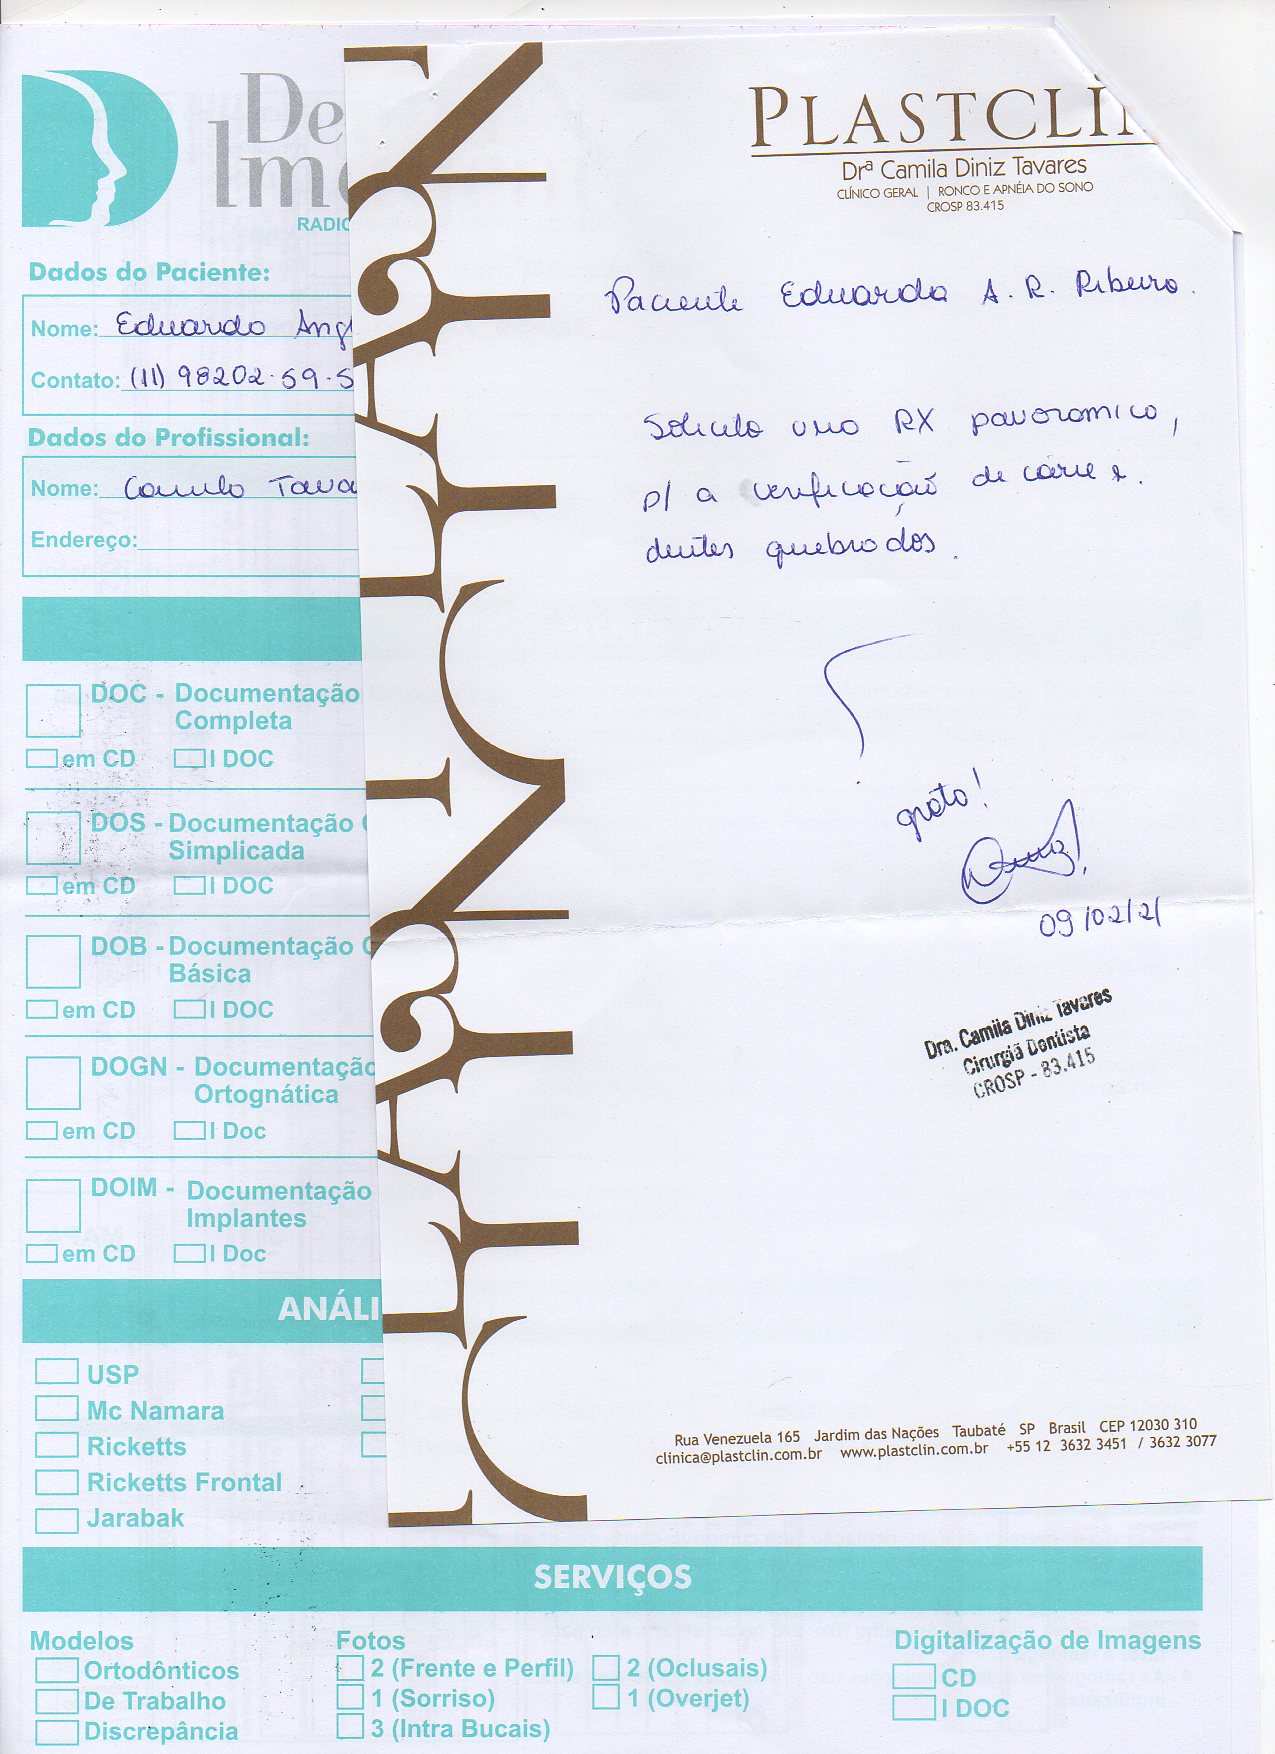 De
Ima
RADIO
Dados do Paciente:
Nome: Eduardo Ang
Contato: (11) 98202-59-5
Dados do Profissional:
Nome: Camila Tava
Endereço:
DOC - Documentação
Completa
em CD I DOC
DOS - Documentação
Simplicada
em CD I DOC
DOB - Documentação
Básica
em CD I DOC
DOGN - Documentação
Ortognática
em CD I Doc
DOIM - Documentação
Implantes
em CD I Doc
ANÁLI
USP
Mc Namara
Ricketts
Ricketts Frontal
Jarabak
SERVIÇOS
Modelos
Ortodônticos
De Trabalho
Discrepância
Fotos
2 (Frente e Perfil) 2 (Oclusais)
1 (Sorriso) 1 (Overjet)
3 (Intra Bucais)
Digitalização de Imagens
CD
I DOC
PLASTCLIN
Drª Camila Diniz Tavares
CLÍNICO GERAL | RONCO E APNÉIA DO SONO
CROSP 83.415
Paciente Eduardo A. R. Ribeiro.
Solicito uma RX panoramico,
p/ a verificação de cárie e
dentes quebrados.
grato!
09/02/21
Dra. Camila Diniz Tavares
Cirurgiã Dentista
CROSP - 83.415
Rua Venezuela 165 Jardim das Nações Taubaté SP Brasil CEP 12030 310
clinica@plastclin.com.br www.plastclin.com.br +55 12 3632 3451 / 3632 3077